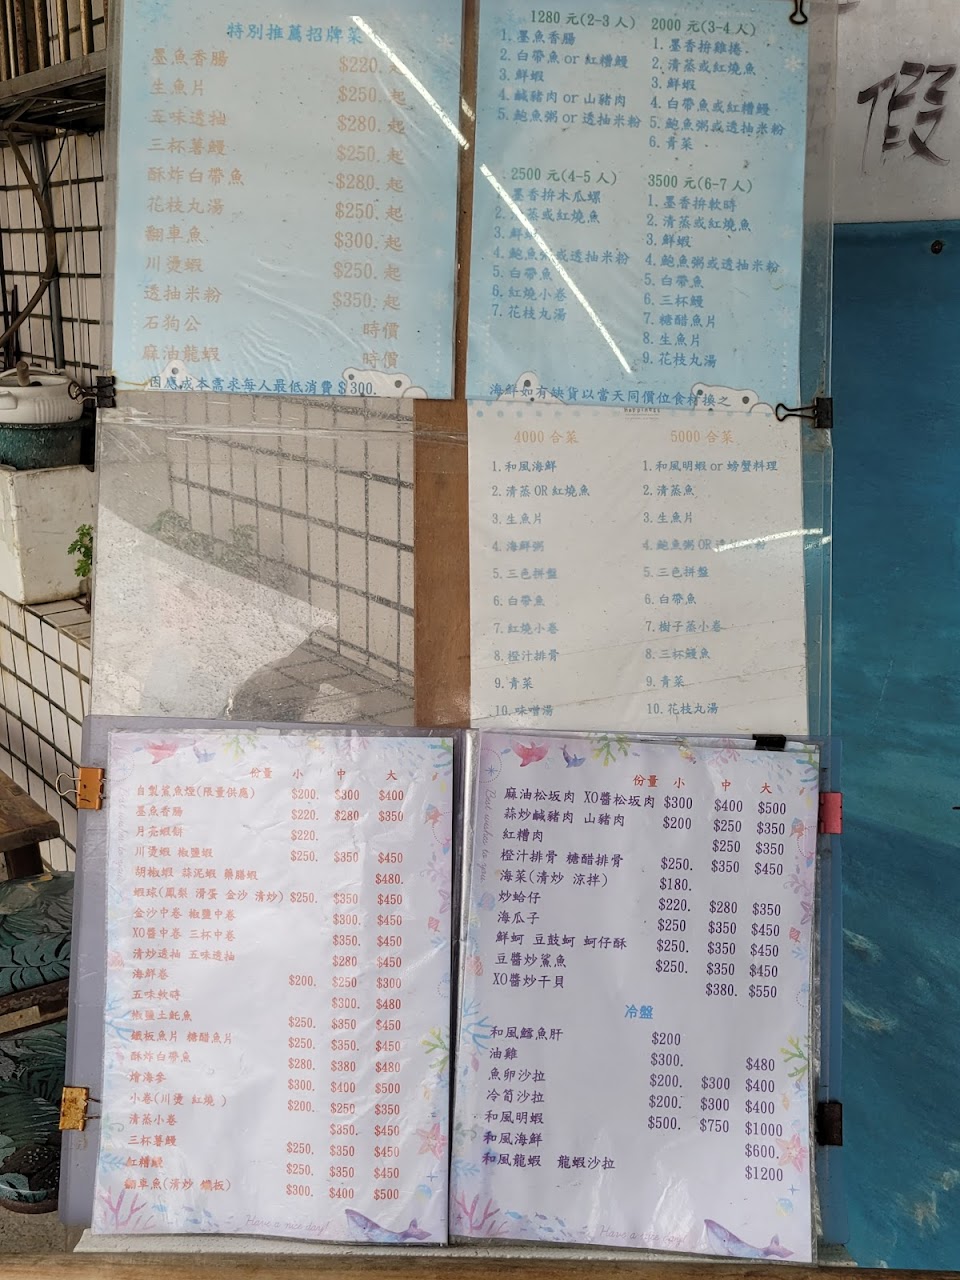 特別推薦招牌菜
墨魚香腸 $220.起
生魚片 $250.起
五味透抽 $280.起
三杯薯鰻 $250.起
酥炸白帶魚 $280.起
花枝丸湯 $250.起
翻車魚 $300.起
川燙蝦 $250.起
透抽米粉 $350.起
石狗公 時價
麻油龍蝦 時價
因應成本需求每人最低消費$300.
1280 元(2-3 人)
1. 墨魚香腸
2. 白帶魚 or 紅糟鰻
3. 鮮蝦
4. 鹹豬肉 or 山豬肉
5. 鮑魚粥 or 透抽米粉
2000 元(3-4 人)
1. 墨香拚雞捲
2. 清蒸或紅燒魚
3. 鮮蝦
4. 白帶魚或紅糟鰻
5. 鮑魚粥或透抽米粉
6. 青菜
2500 元(4-5 人)
1. 墨香拚木瓜螺
2. 清蒸或紅燒魚
3. 鮮蝦
4. 鮑魚粥或透抽米粉
5. 白帶魚
6. 紅燒小卷
7. 花枝丸湯
3500 元(6-7 人)
1. 墨香拚軟時
2. 清蒸或紅燒魚
3. 鮮蝦
4. 鮑魚粥或透抽米粉
5. 白帶魚
6. 三杯鰻
7. 糖醋魚片
8. 生魚片
9. 花枝丸湯
海鮮如有缺貨以當天同價位食材換之
假
4000 合菜
1. 和風海鮮
2. 清蒸 OR 紅燒魚
3. 生魚片
4. 海鮮粥
5. 三色拼盤
6. 白帶魚
7. 紅燒小卷
8. 橙汁排骨
9. 青菜
10. 味噌湯
5000 合菜
1. 和風明蝦 or 螃蟹料理
2. 清蒸魚
3. 生魚片
4. 鮑魚粥 OR 透抽米粉
5. 三色拼盤
6. 白帶魚
7. 樹子蒸小卷
8. 三杯鰻魚
9. 青菜
10. 花枝丸湯
份量 小 中 大
自製鯊魚煙(限量供應) $200. $300 $400
墨魚香腸 $220. $280 $350
月亮蝦餅 $220.
川燙蝦 椒鹽蝦 $250. $350 $450
胡椒蝦 蒜泥蝦 藥膳蝦 $480.
蝦球(鳳梨 滑蛋 金沙 清炒) $250. $350 $450
金沙中卷 椒鹽中卷 $300. $450
XO醬中卷 三杯中卷 $350. $450
清炒透抽 五味透抽 $280 $450
海鮮卷 $200. $250 $300
五味軟時 $300. $480
椒鹽土魠魚 $250. $350 $450
鐵板魚片 糖醋魚片 $250. $350. $450
酥炸白帶魚 $280. $380 $480
燴海參 $300. $400 $500
小卷(川燙 紅燒 ) $200. $250 $350
清蒸小卷 $350. $450
三杯薯鰻 $250. $350 $450
紅糟鰻 $250. $350 $450
翻車魚(清炒 鐵板) $300. $400 $500
Have a nice day!
Best wishes to you
份量 小 中 大
麻油松坂肉 XO醬松坂肉 $300 $400 $500
蒜炒鹹豬肉 山豬肉 $200 $250 $350
紅糟肉 $250 $350
橙汁排骨 糖醋排骨 $250. $350 $450
海菜(清炒 涼拌) $180.
炒蛤仔 $220. $280 $350
海瓜子 $250 $350 $450
鮮蚵 豆鼓蚵 蚵仔酥 $250. $350 $450
豆醬炒鯊魚 $250. $350 $450
XO醬炒干貝 $380. $550
冷盤
和風鱈魚肝 $200
油雞 $300. $480
魚卵沙拉 $200. $300 $400
冷筍沙拉 $200. $300 $400
和風明蝦 $500. $750 $1000
和風海鮮 $600.
和風龍蝦 龍蝦沙拉 $1200
Have a nice day!